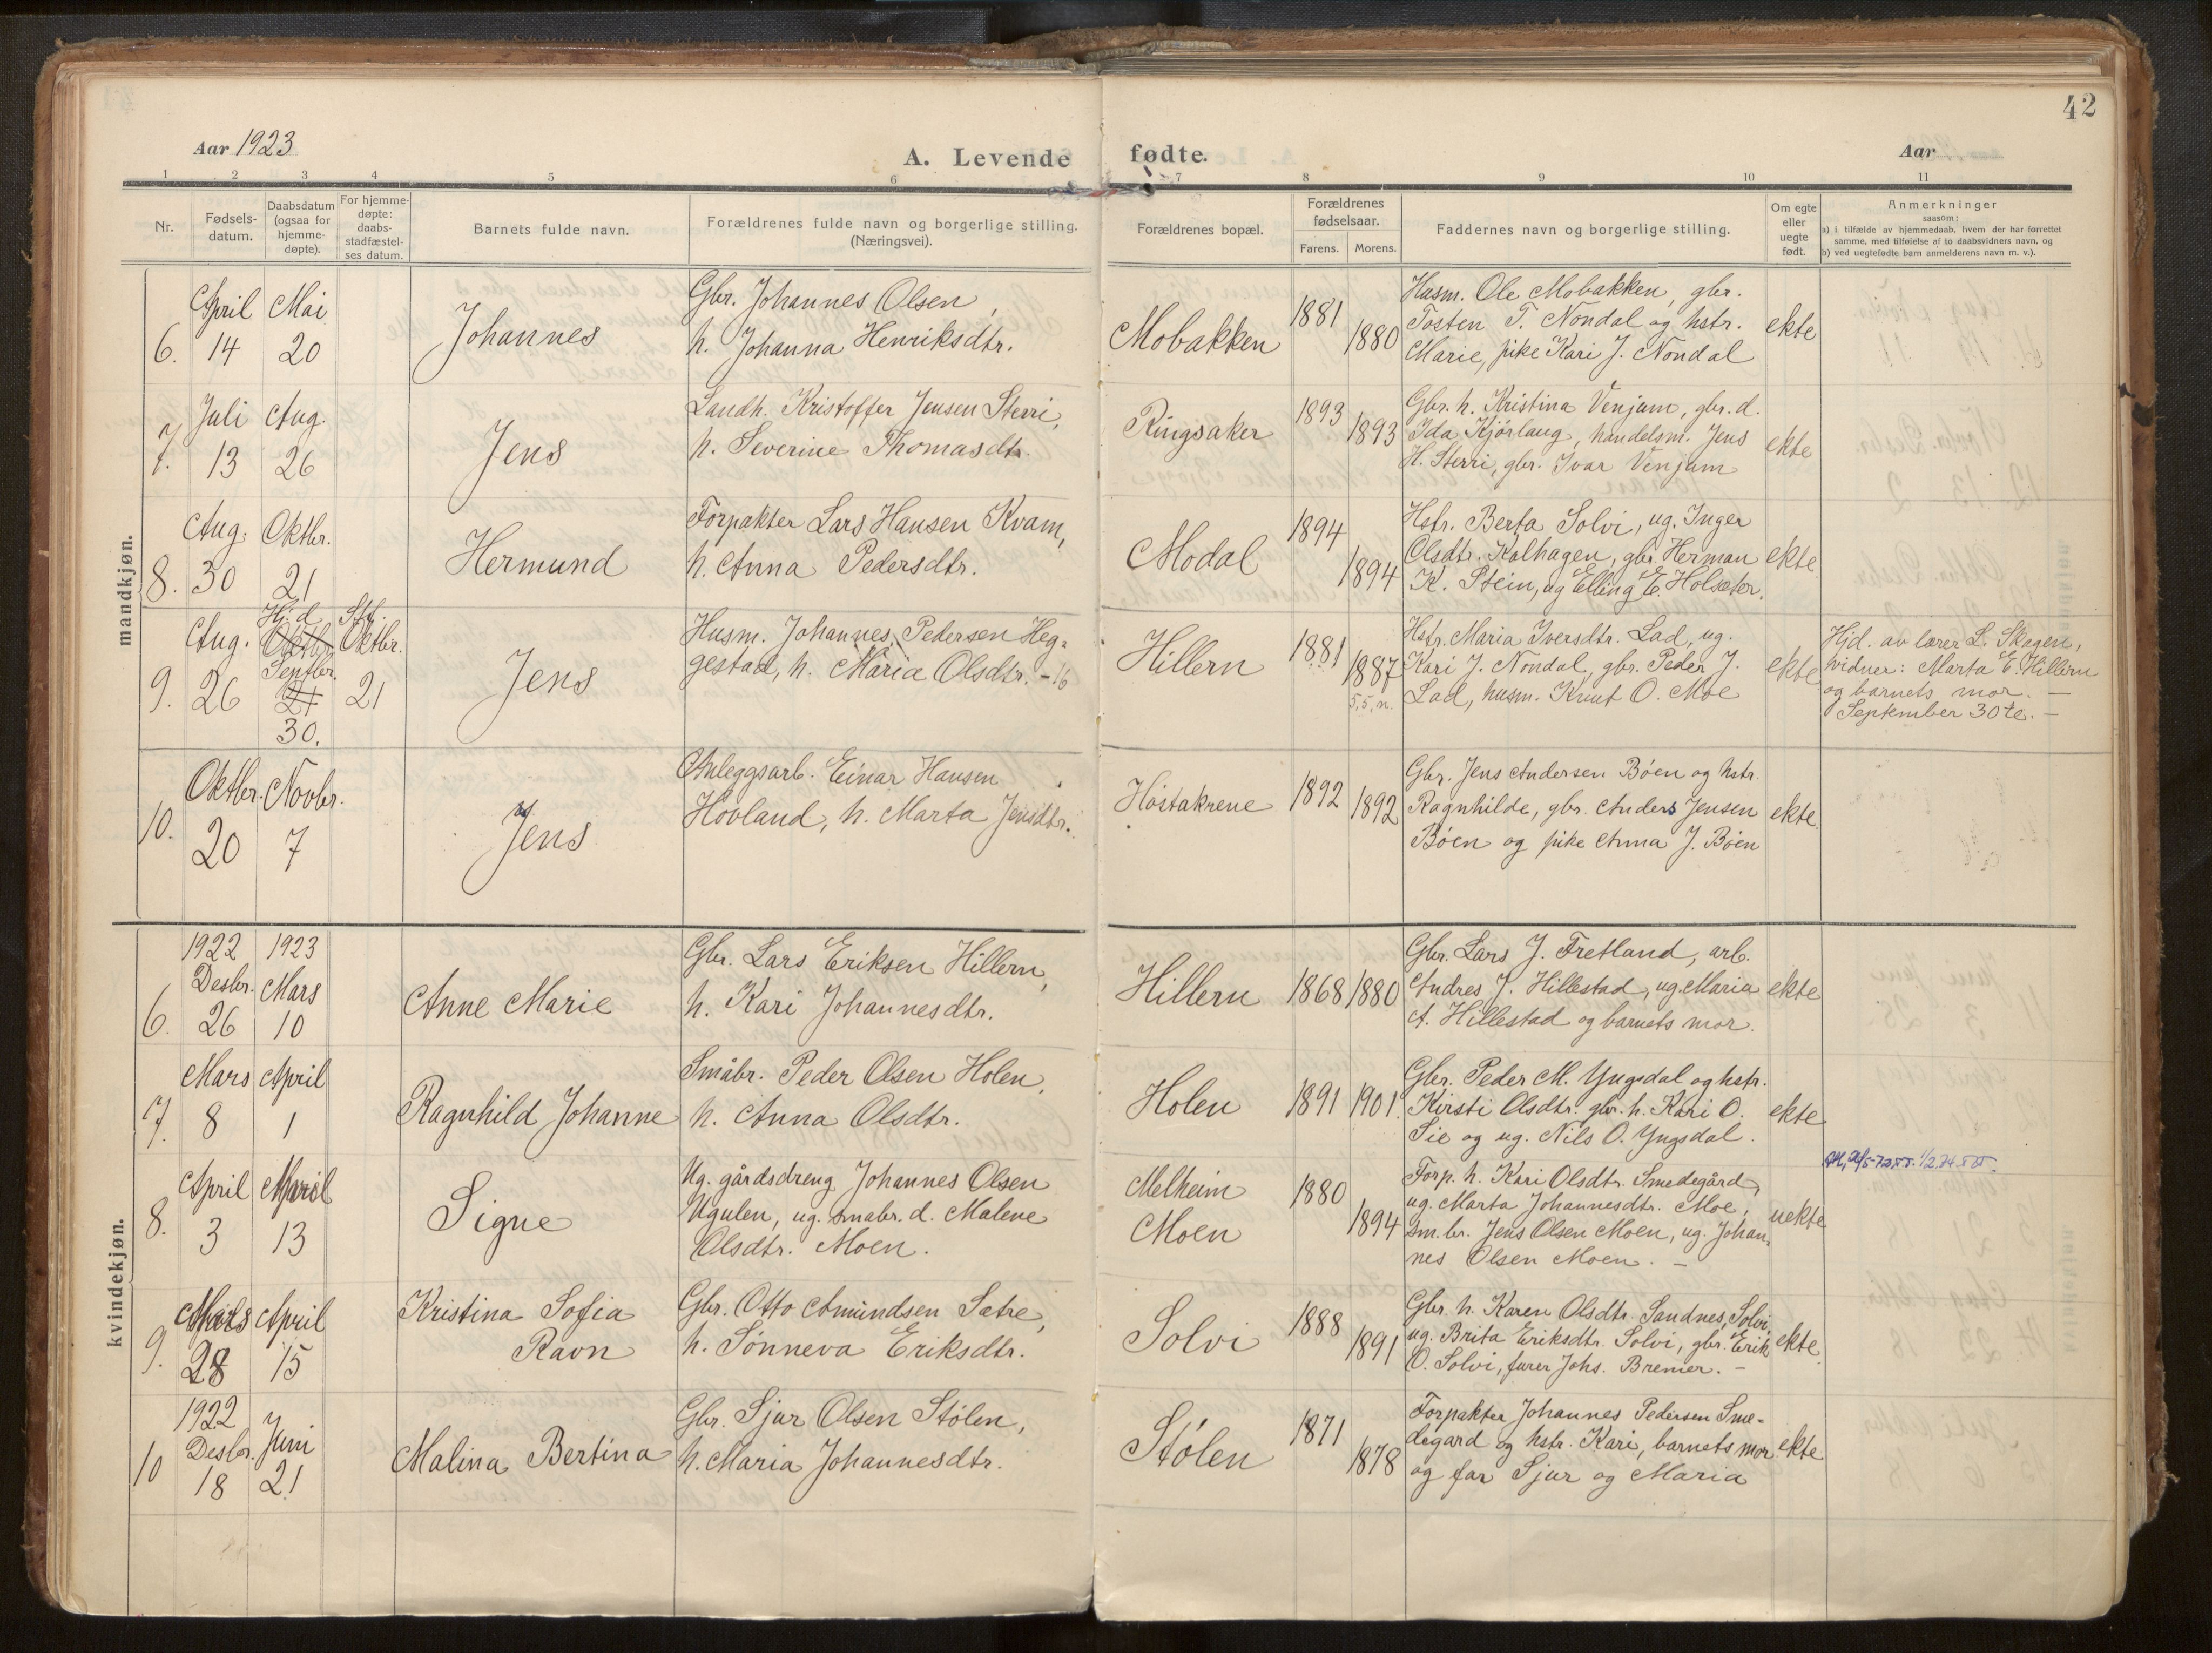 42
Aar 1923
A. Levende fødte.
Aar
1 2 3 4 5 6 7 8 9 10 11
Nr.
Fødsels-
datum.
Daabsdatum
(ogsaa for
hjemme-
døpte).
For hjemme-
døpte:
daabs-
stadfæstel-
ses datum.
Barnets fulde navn.
Forældrenes fulde navn og borgerlige stilling.
(Næringsvei).
Forældrenes bopæl.
Forældrenes
fødselsaar.
Farens. Morens.
Faddernes navn og borgerlige stilling.
Om egte
eller
uegte
født.
Anmerkninger
saasom:
a) i tilfælde av hjemmedaab, hvem der har forrettet
samme, med tilføielse af to daabsvidners navn, og
b) ved uegtefødte barn anmelderens navn m. v.).
mandkjøn.
6.
April
14
Mai
20
Johannes
Gbr. Johannes Olsen,
h. Johanna Henriksdtr.
Mobakken
1881
1880
Husm. Ole Mobakken, gbr.
Tosten T. Nondal og hstr.
Marie, pike Kari J. Nondal
ekte
7.
Juli
13
Aug.
26
Jens
Landh. Kristoffer Jensen Sterri,
h. Severine Thomasdtr.
Ringsaker
1893
1893
Gbr. h. Kristina Venjum, gbr. d.
Ida Kjørlaug, handelsm. Jens
H. Sterri, gbr. Ivar Venjum
ekte
8.
Aug.
30
Oktbr.
21
Hermund
Forpakter Lars Hansen Kvam,
h. Anna Pedersdtr.
Modal
1894
1894
Hstr. Berta Solvi, ug. Inger
Olsdtr. Kolhagen, gbr. Herman
K. Stein, ug Elling E. Holsæter.
ekte
9.
Aug.
26
Hj.d.
Oktbr.
Septbr.
21
30.
Stf.
Oktbr.
21
Jens
Husm. Johannes Pedersen Heg-
gestad, h. Maria Olsdtr. -16
Hillern
1881
1887
5,5, n.
Hstr. Maria Iversdtr. Lad, ug.
Kari J. Nondal, gbr. Peder J.
Lad, husm. Knut O. Moe
ekte
Hjd. av lærer L. Skagen,
vidner: Marta E. Hillern
og barnets mor. –
September 30te. –
10.
Oktbr.
20
Novbr.
7
Jens
Anleggsarb. Einar Hansen
Hovland, h. Marta Jensdtr.
Høstakrene
1892
1892
Gbr. Jens Andersen Bøen og hstr.
Ragnhilde, gbr. Anders Jensen
Bøen og pike Anna J. Bøen
ekte.
kvindekjøn.
6.
1922
Desbr.
26
1923
Mars
10
Anne Marie
Gbr. Lars Eriksen Hillern,
h. Kari Johannesdtr.
Hillern
1868
1880
Gbr. Lars J. Fretland, arb.
Andres J. Hillestad, ug. Maria
A. Hillestad og barnets mor.
ekte
7.
Mars
8
April
1
Ragnhild Johanne
Småbr. Peder Olsen Holen,
h. Anna Olsdtr.
Holen
1891
1901
Gbr. Peder M. Yngsdal og hstr.
Kirsti Olsdtr. gbr. h. Kari O.
Sie og ug. Nils O. Yngsdal.
ekte
8.
April
3
April
13
Signe
Ug. gårdsdreng Johannes Olsen
Ugulen, ug. småbr. d. Malene
Olsdtr. Moen.
Melheim
Moen
1880
1894
Forp. h. Kari Olsdtr. Smedegård,
ug. Marta Johannesdtr. Moe,
sm.br. Jens Olsen Moen, ug. Johan-
nes Olsen Moen. –
uekte
9.
Mars
28
April
15
Kristina Sofia
Ravn
Gbr. Otto Amundsen Satre,
h. Sønneva Eriksdtr.
Solvi
1888
1891
Gbr. h. Karen Olsdtr. Sandnes, Solvi,
ug. Brita Eriksdtr. Solvi, gbr. Erik
O. Solvi, furer Johs. Bremer. –
ekte.
10
1922
Desbr.
18
Juni
21
Malina Bertina
Gbr. Sjur Olsen Stølen,
h. Maria Johannesdtr.
Stølen
1871
1878
Forpakter Johannes Pedersen Sme-
degard og hstr. Kari, barnets mor
og far Sjur og Maria
ekte.